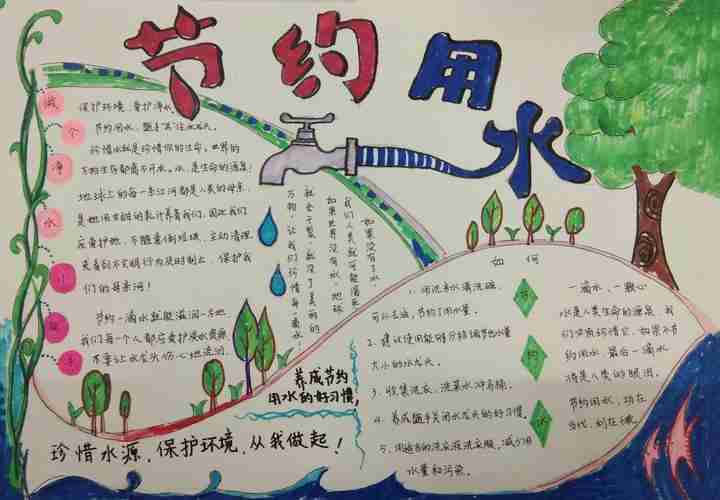 节约用水
做
个
净
水
小
能
手
保护环境,爱护净水
节约用水,随手关住水龙头。
珍惜水就是珍惜你的生命,世界的
万物生存都离不开水,水,是生命的源泉!
地球上的每一条江河都是人类的母亲,
是她用甘甜的乳汁养育我们,因此我们
应爱护她,不随意倒垃圾,主动清理,
来看到不文明行为及时制止,保护我
们的母亲河!
节约一滴水就能滋润一方地,
我们每一个人都应爱护淡水资源,
不要让水龙头伤心地流泪。
如果没有了水,
我们人类就可能消失,
如果世界没有水,地球
就会干裂,就没了美丽的
万物,让我们珍惜每一滴水。
养成节约
用水的好习惯,
珍惜水源、保护环境、从我做起!
如何
节
约
水
1.用洗米水清洗碗,
可以去油,节约了用水量。
2.建议使用能够分档调节出水量
大小的水龙头。
3.收集洗衣、洗菜水冲马桶。
4.养成随手关闭水龙头的好习惯。
5.用适当的洗衣液洗衣服,减少用
水量和污染。
一滴水,一颗心
水是人类生命的源泉,我
们应该珍惜它,如果不节
约用水,最后一滴水
将是人类的眼泪。
节约用水,功在
当代,利在千秋。